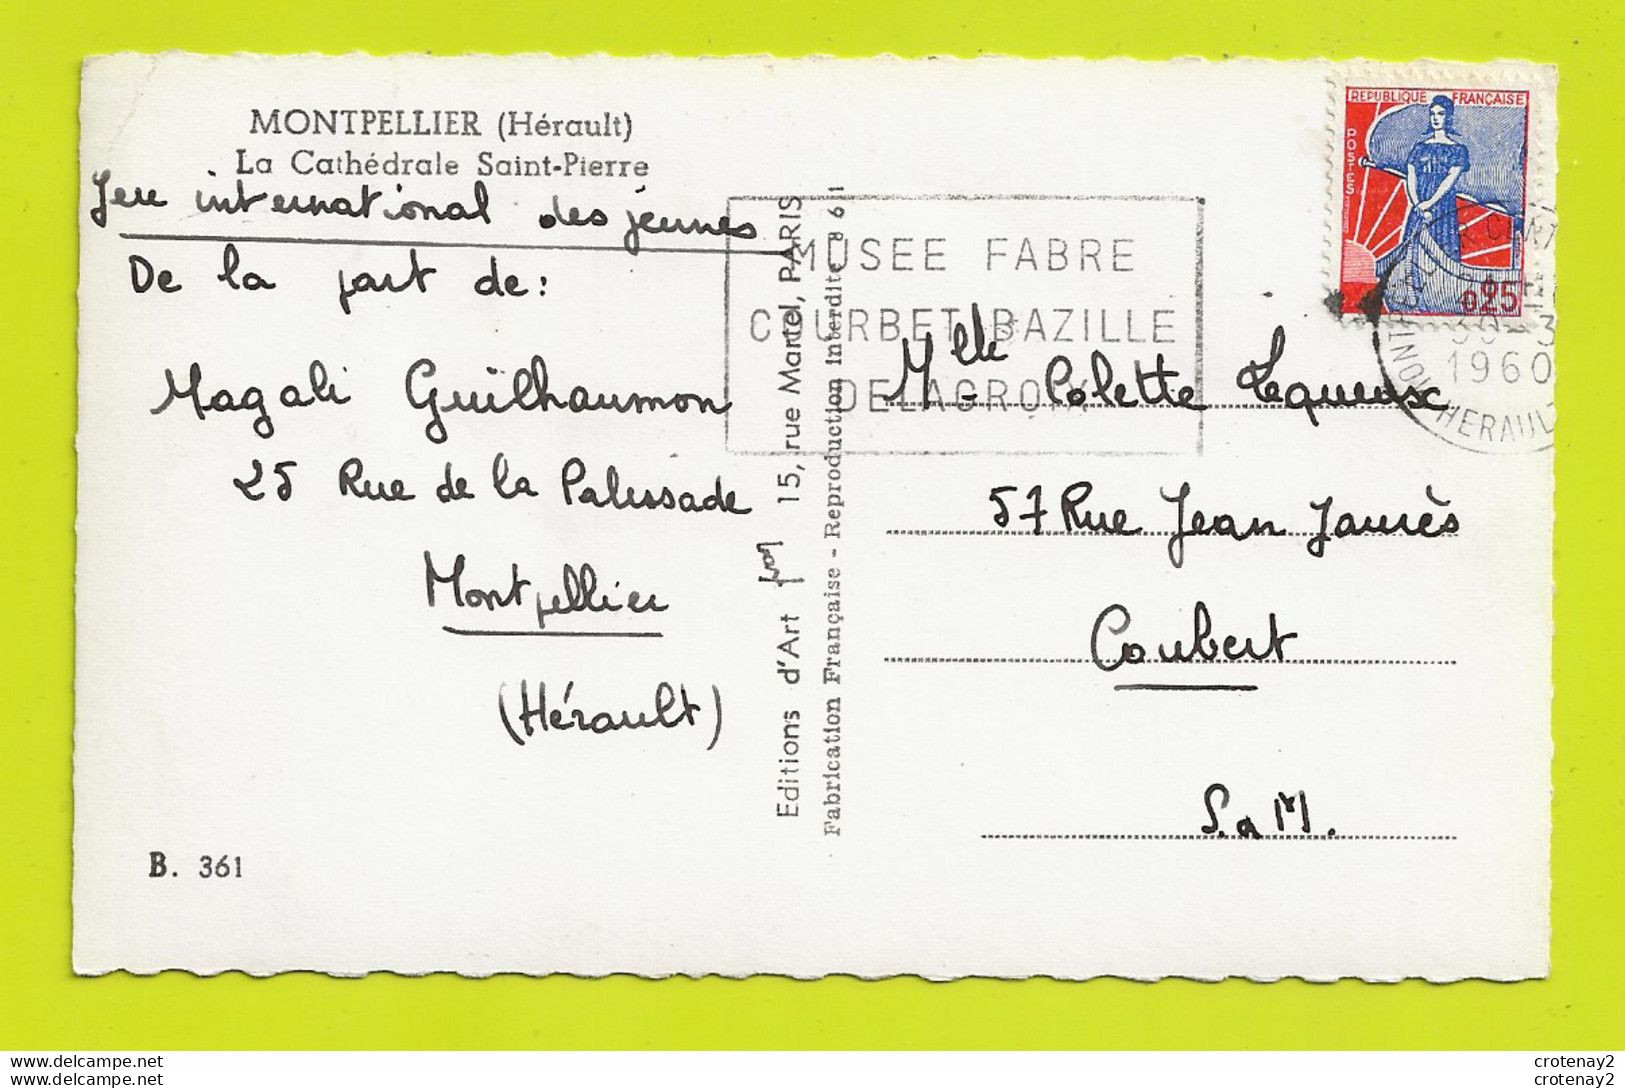 MONTPELLIER (Hérault)
La Cathédrale Saint-Pierre
international des jeunes
De la part de:
Magali Guilhaumon
25 Rue de la Palissade
Montpellier
(Hérault)
B. 361
Editions d'Art 15, rue Martel, PARIS
Fabrication Française - Reproduction Interdite 8 61
MUSEE FABRE
COURBET BAZILLE
DELACROIX
REPUBLIQUE FRANÇAISE
POSTES
0,25
1960
HERAULT
Mlle Colette Lequeux
57 Rue Jean Jaurès
Coubert
S. a M.
www.delcampe.net
www.delcampe.net
crotenay2
crotenay2